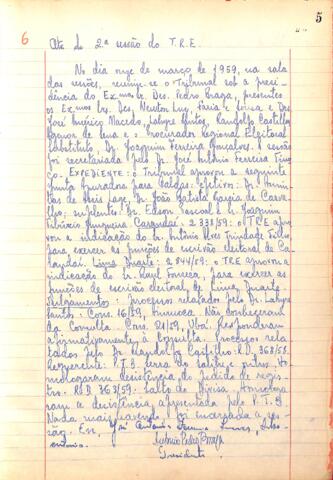 5
6
Ata da 2.ª sessão do T.R.E.
No dia onze de março de 1959, na sala
das sessões, reuniu-se o Tribunal sob a presi-
dência do Ex.mo Sr. Des. Pedro Braga, presentes
os Ex.mos Srs. Des. Newton Luz, Faria e Sousa e Des.
José Américo Macedo, Lahyre Santos, Randolfo Castilho,
e o Procurador Regional Eleitoral
Substituto, Dr. Joaquim Ferreira Gonçalves. A sessão
foi secretariada pelo Dr. José Antônio Ferreira
EXPEDIENTE: o Tribunal aprova a seguinte
junta apuradora para Caldas: efetivo: Dr.
de Assis Lage, Dr. João Batista Garcia de Carva-
lho; suplente: Dr. Edson Pascoal e Dr. Joaquim
Tibúrcio Junqueira. Carandaí: 2.338/59: o TRE apro-
vou a indicação do Sr. Antônio Alves Trindade Filho,
para exercer as funções de escrivão eleitoral de Ca-
randaí. Lima Duarte: 2.844/59: o TRE aprovou a
indicação do Sr. Raul Fonseca, para exercer as
funções de escrivão eleitoral de Lima Duarte.
Julgamentos: Processos relatados pelo Dr. Lahyre
Santos: Cons. 16/59, Não conheceram
da Consulta. Cons. 21/59, Ubaí. Responderam
afirmativamente à consulta. Processos rela-
tados pelo Dr. Randolfo Castilho: R.D. 368/58.
Requerente: P.T.B. Serra do Salitre e outros. Ho-
mologaram desistência do pedido de regis-
tro. R.D. 363/59: Salto da Divisa. Homologa-
ram a desistência apresentada pelo P.T.B.
Nada mais havendo, foi encerrada a ses-
são. Eu, José Antônio
Antônio Pedro Braga
Presidente